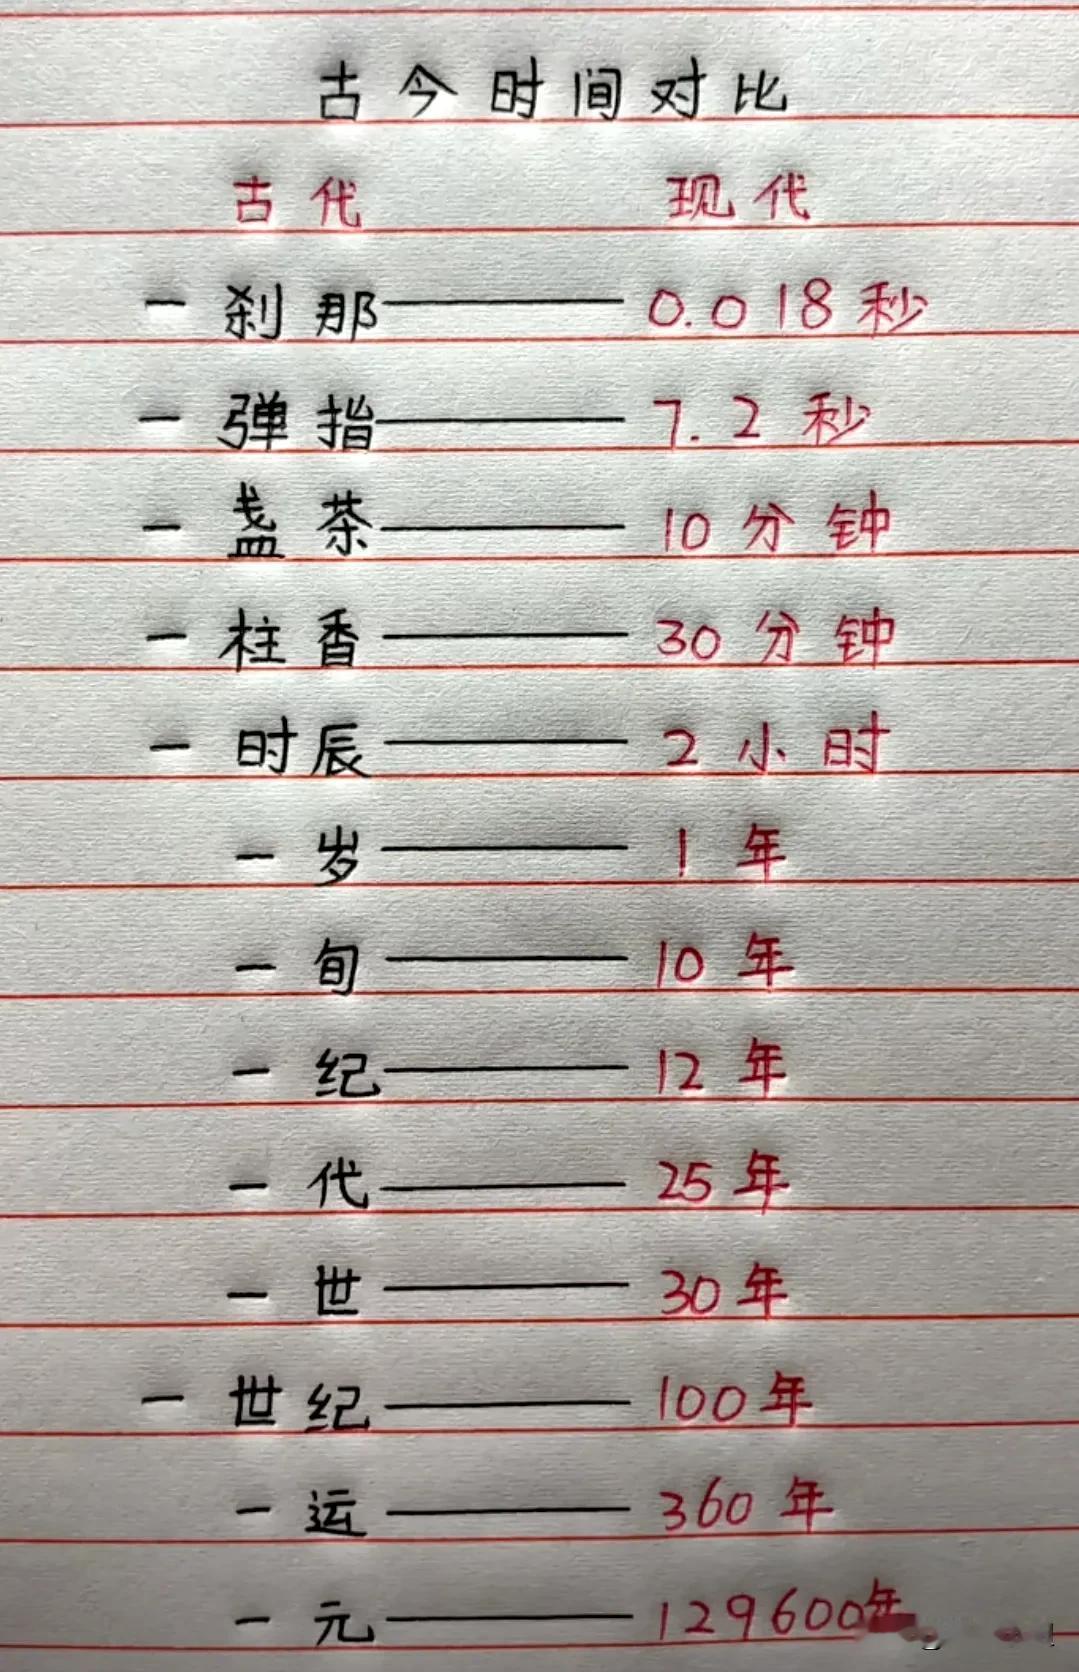 古今时间对比
古代 现代
一刹那——0.018秒
一弹指——7.2秒
一盏茶——10分钟
一柱香——30分钟
一时辰——2小时
一岁——1年
一旬——10年
一纪——12年
一代——25年
一世——30年
一世纪——100年
一运——360年
一元——129600年